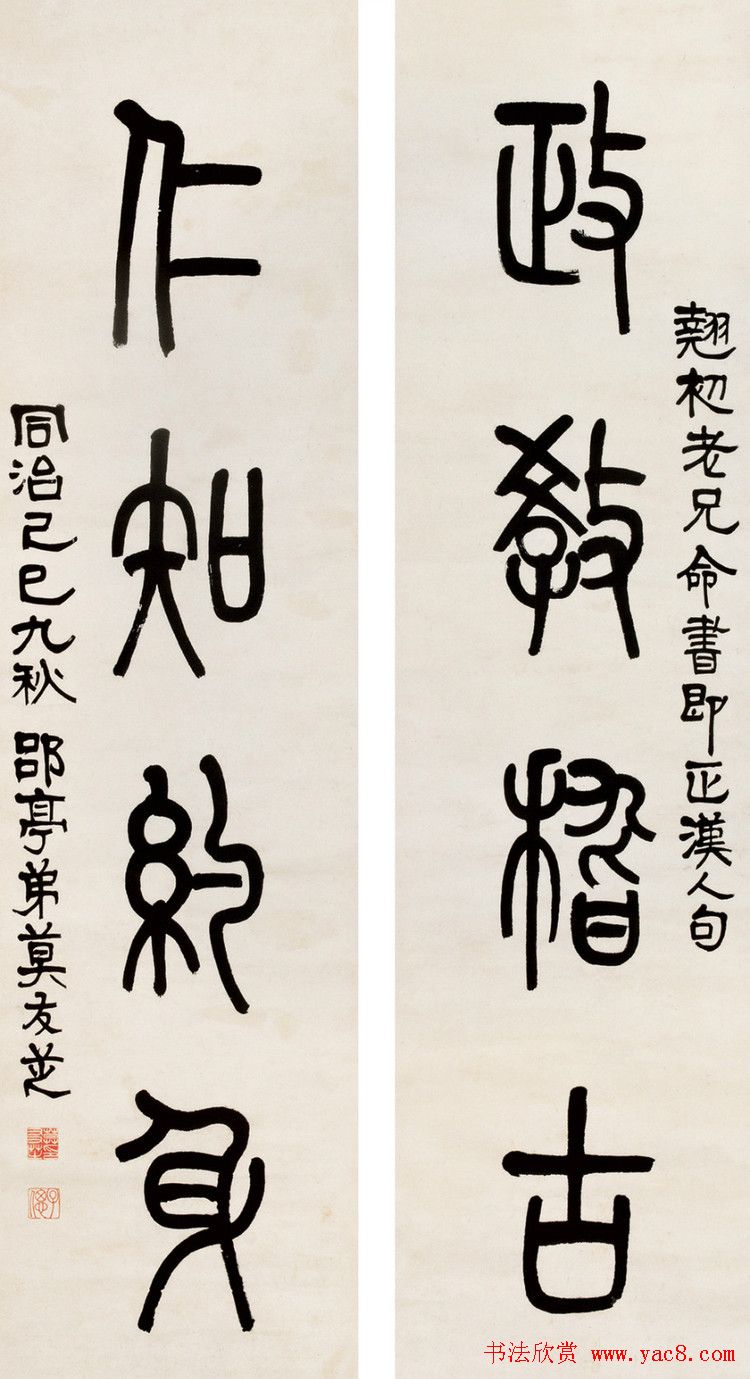 翹初老兄命書即正漢人句
政教稽古
仁知約身
同治己巳九秋 郘亭弟莫友芝
子偲
书法欣赏 www.yac8.com